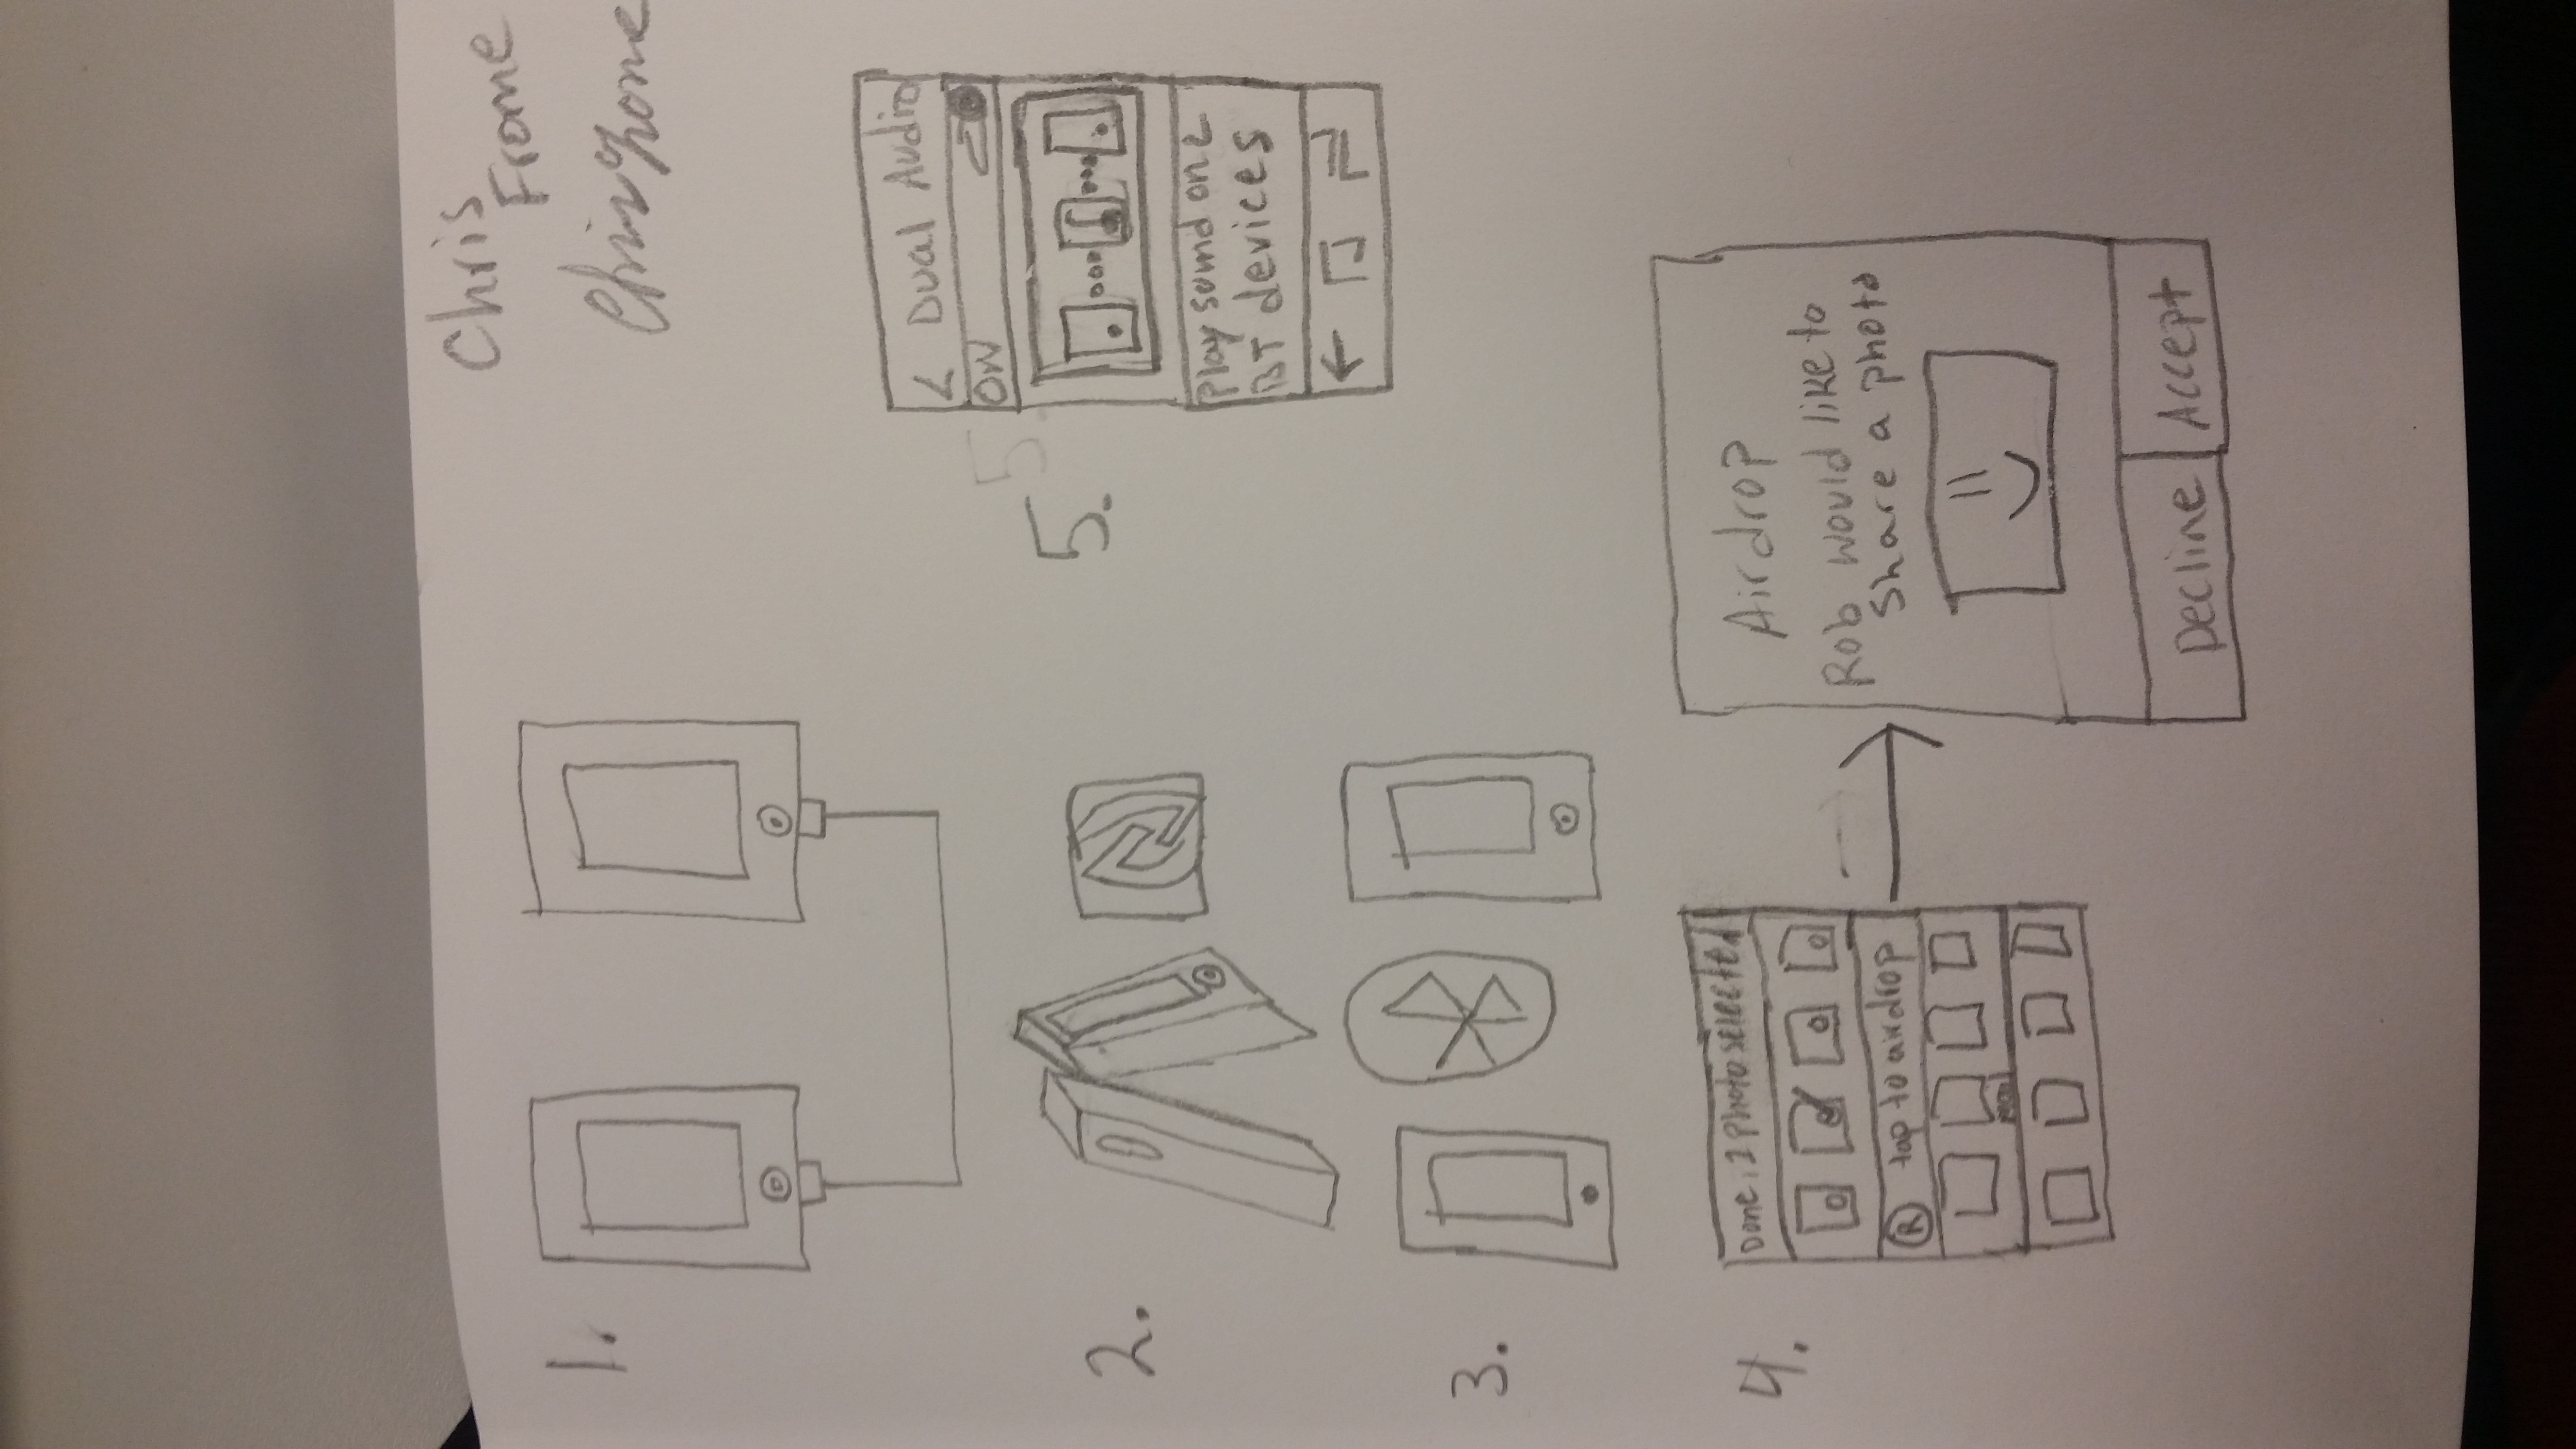 Chris
Frome
Chris Frome
1.
2.
3.
4.
Done, 1 photo selected
R tap to airdrop
Airdrop
Rob would like to
share a photo
Decline Accept
5.
5.
< Dual Audio
ON
Play sound on 2
BT devices